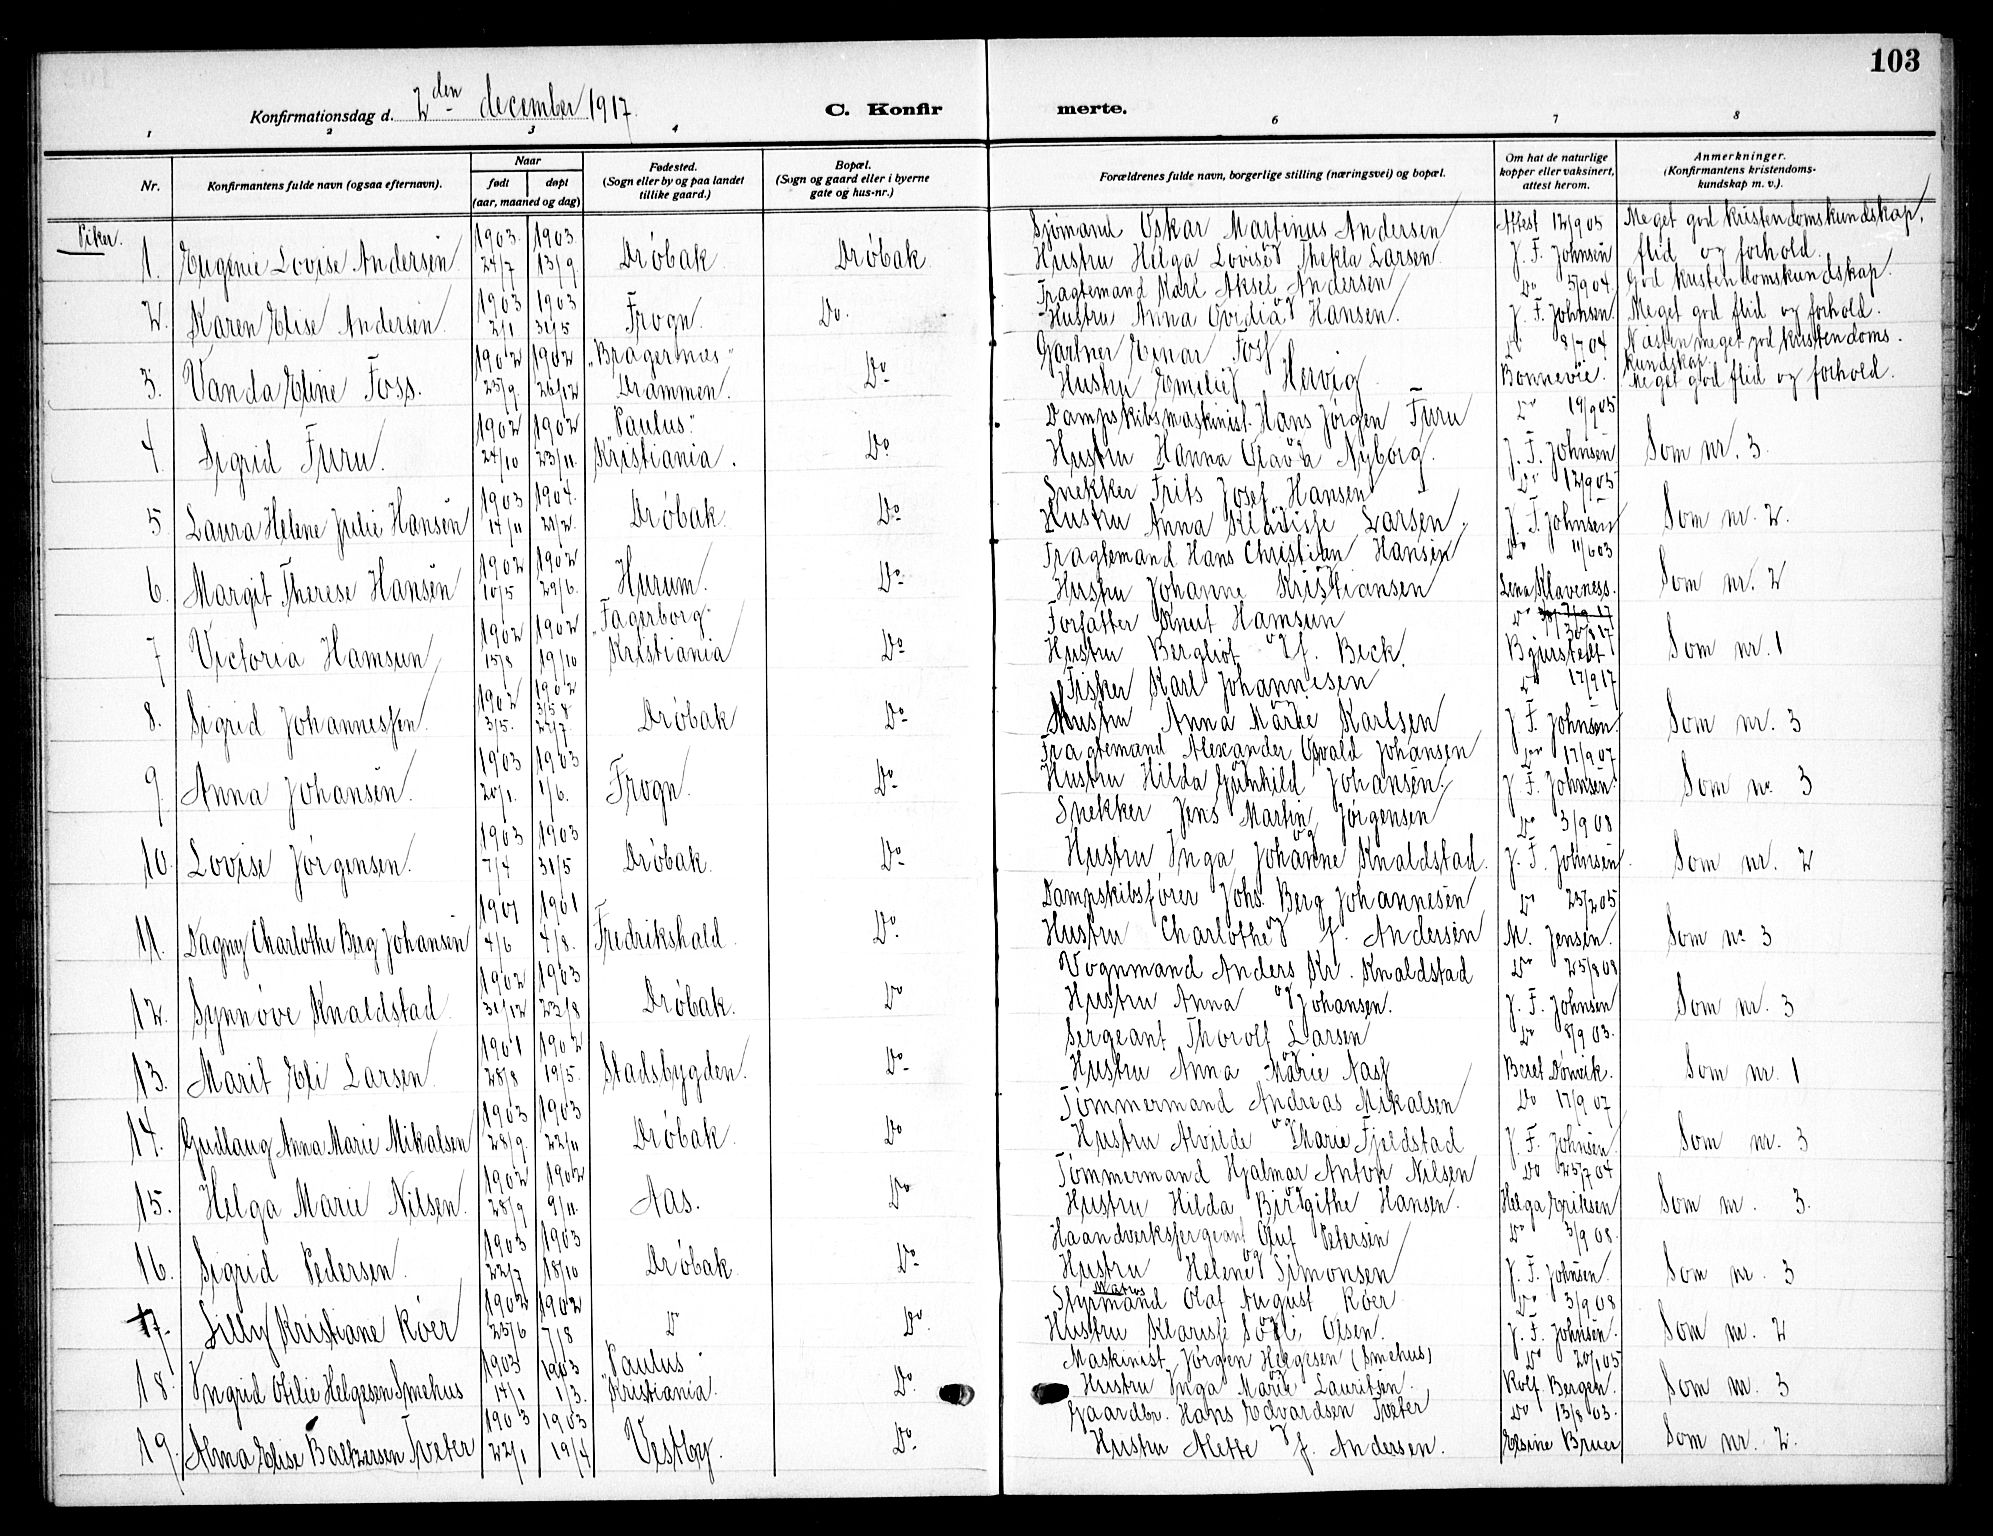 103
Konfirmationsdag d. 2den december 1917.
C. Konfirmerte.
1 2 3 4 6 7 8
Nr.
Konfirmantens fulde navn (ogsaa efternavn).
Naar
født
døpt
(aar, maaned og dag)
Fødested.
(Sogn eller by og paa landet
tillike gaard.)
Bopæl.
(Sogn og gaard eller i byerne
gate og hus-nr.)
Forældrenes fulde navn, borgerlige stilling (næringsvei) og bopæl.
Om hat de naturlige
kopper eller vaksinert,
attest herom.
Anmerkninger.
(Konfirmantens kristendoms-
kundskap m. v.).
Piker.
1903. 1903. Sjømand Oskar Martinus Andersen Attest 12/9 05 Meget god kristendomskundskap,
1. Eugenie Lovise Andersen 24/7 13/9 Drøbak Drøbak. Hustru Helga Lovise Thekla Larsen. J. F. Johnsen flid og forhold.
1903 1903 Fragtemand Karl Aksel Andersen Do 5/9 04. God kristendomskundskap.
2. Karen Elise Andersen. 2/1 31/5 Frogn. Do. Hustru Anna Ovidia Hansen. J. F. Johnsen. Meget god flid og forhold.
1902 1902 "Bragernæs" Gartner Einar Foss Do. 8/7 04 Næsten meget god kristendoms.
3. Vanda Eline Foss. 25/9. 26/12 Drammen. Do Hustru Emilie Hervig. Bonnevie. kundskap. Meget god flid og forhold.
1902 1902 "Paulus" Dampskibsmaskinist. Hans Jørgen Furu Do 19/9 05
4. Sigrid Furu. 24/10 23/11 Kristiania. Do Hustru Hanna Nyborg. J. F. Johnsen Som nr. 3.
1903 1904. Snekker Frits Josef Hansen Do 12/9 05
5 Laura Helene Julie Hansen 14/11 21/2. Drøbak. Do Hustru Anna Larsen. J. F. Johnsen Som nr. 2.
1902 1902 Fragtemand Hans Christian Hansen Do 11/6 03
6. Margit Therese Hansen 10/5 29/6. Hurum. Do Hustru Johanne Kristiansen Lena Klaveness. Som nr. 2
1902 1902 "Fagerborg" Forfatter Knut Hamsun Do 30/8 17
7 Victoria Hamsun 15/8 19/10 Kristiania Do Hustru Bergliot f. Beck. Bjurstedt Som nr. 1
1902 1902 Fisker Karl Johannesen Do 17/9 17
8. Sigrid Johannessen. 3/5. 27/7. Drøbak Do Hustru Anna Marie Karlsen J. F. Johnsen. Som nr. 3
1903 1903 Fragtemand Alexander Osvald Johansen Do 17/9 07
9. Anna Johansen. 20/1. 1/6. Frogn. Do Hustru Hilda Gunhild Johansen. J. F. Johnsen. Som nr 3
1903 1903 Snekker Jens Martin Jørgensen Do 3/9 08
10. Lovise Jørgensen. 7/4 31/5 Drøbak. Do Hustru Inga Johanne Knaldstad. J. F. Johnsen. Som nr. 2
1901 1901 Dampskibsfører Johs. Berg Johannesen Do 25/2 05
11. Dagny Charlothe Berg Johansen 4/6 4/8. Fredrikshald. Do. Hustru Charlothe f. Andersen M. Jensen. Som nr 3
1902 1903 Vognmand Anders Kr. Knaldstad Do 25/8 08
12. Synnøve Knaldstad. 31/12 23/8 Drøbak. Do Hustru Anna Johansen. J. F. Johnsen Som nr. 3
1901 1902 Sergeant Thorolf Larsen Do 8/9 03.
13. Marit Eli Larsen. 28/8 19/5. Stadsbygden. Do Hustru Anna Marie Aas Beret Dønvik. Som nr. 1
1903 1903 Tømmermand Andreas Mikalsen Do 17/9 07
14. Gudlaug Anna Marie Mikalsen 28/9. 22/11 Drøbak. Do Hustru Alvilde Marie Fjeldstad J. F. Johnsen. Som nr. 3
1902 1902 Tømmermand Hjalmar Anton Nilsen Do 25/7 04
15. Helga Marie Nilsen. 28/9 9/11. Aas. Do Hustru Hilda Birgithe Hansen. Helga Eriksen Som nr. 3.
1903 1903 Haandverksfergeant Oluf Petersen Do 3/9 08.
16. Sigrid Pedersen. 22/7 18/10 Drøbak. Do. Hustru Helene Simonsen J. F. Johnsen. Som nr. 3
1902 1902 Styrmand Olaf August Køer Do. 3/9 08
17. Lilly Kristiane Køer 25/6 7/8 Do Do. Hustru Olsen. J. F. Johnsen. Som nr. 2
1903 1903 "Paulus" Maskinist Jørgen Helgesen (Smehus) Do 20/1 05
18. Ingrid Otilie Helgesen Smehus 14/1 1/3. Kristiania. Do. Hustru Inga Marie Lauritsen. Rolf Bergen. Som nr. 3
1903 1903 Gaardbr. Hans Edvardsen Tveter Do 13/8 03.
19. Alma Elise Baltzersen Tveter 22/1 19/4 Vestby. Do. Hustru Alette f. Andersen. Elsine Bruer Som nr. 2.